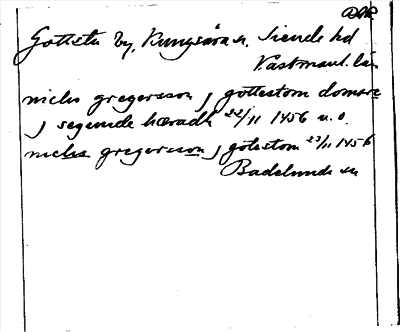 Gottsta by, Kungsåra sn. Siende hd
Västmanl. län
niclis gregersson j gottestom domare
j segende hæradh 22/11 1456 u. o.
niclis gregersson j gotestom 23/11 1456
Badelunda sn